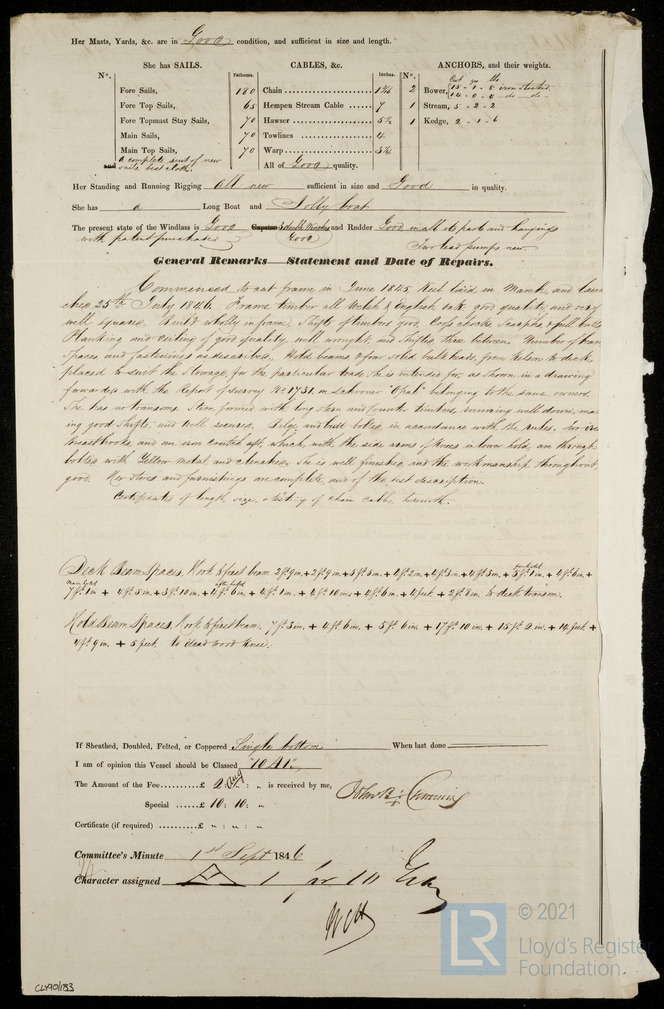 Her Masts, Yards, &c. are in Good condition, and sufficient in size and length.
She has SAILS.
CABLES, &c.
ANCHORS, and their weights.
N°.
Fathoms.
Inches.
N°.
Cwt qr lbs
Fore Sails, 180 Chain 2 Bower, 15 - 1 - 8 iron stocked
14 - 0 - 4 do do
Fore Top Sails, 65 Hempen Stream Cable 7 1 Stream, 5 - 2 - 2
Fore Topmast Stay Sails, 70 Hawser 1 Kedge, 2 - 1 - 6
Main Sails, 70 Towlines 4
Main Top Sails, 70 Warp
A complete suit of new
and sails best cloth. All of Good quality.
Her Standing and Running Rigging all new sufficient in size and Good in quality.
She has a Long Boat and Jolly boat
The present state of the Windlass is Good Capstan and Rudder Good in all its parts and hangings
with patent purchase Good Two lead pumps new
General Remarks Statement and Date of Repairs.
Commenced to cut frame in June 1845, Keel laid in March, and laun
ched 25th July 1846. Frame timber all Welsh & English oak, good quality, and very
well squared. Built wholly in frame, Shifts of timbers good, Cross chocks Scarphs, & full butts
Planking and ceiling of good quality, well wrought, and shifted, three between. Number of beam
spaces and fastenings as described. Hold beams & four solid bulkheads, from Kelson to deck
placed to suit the Stowage, for the particular trade, she is intended for, as shown in a drawing
forwarded with the Report of survey No 1731 on Schooner "Opal" belonging to the same owners.
She has no transoms. Stern formed with long stern and Counter timbers, running well down, ma
ing good shifts, and well secured. Bilge and butt bolted, in accordance with the rules. Six iron
breasthooks, and an iron crutch aft, which, with the side arms of Knees in lower hold, are through
bolted with Yellow Metal and clenched. She is well finished and the workmanship throughout
good. Her stores and furnishings are complete, and of the best description.
Certificates of length, size, & testing of chain cable herewith.
Deck Beam Spaces. Hook to first beam 2 ft 9 in. + 2 ft 9 in + 3 ft 5 in. + 4 ft 2 in + 4 ft 3 in + 4 ft 3 in. + 5 ft 1 in. + 4 ft 6 in. +
main hatch after hatch
7 ft 1 in + 4 ft 5 in + 3 ft 10 in. + 4 ft 6 in + 4 ft 1 in. + 4 ft 10 in. + 4 ft 6 in. + 4 feet. + 2 ft 8 in. to deck transom.
Hold Beam Spaces. Hook to first beam. 7 ft 3 in. + 4 ft 6 in. + 5 ft 6 in. + 17 ft 10 in. + 15 ft 2 in. + 14 feet. +
4 ft 9 in. + 5 feet. to dead wood knee.
If Sheathed, Doubled, Felted, or Coppered Single bottom When last done
I am of opinion this Vessel should be Classed "10 A1"
The Amount of the Fee £ 2 : " : " is received by me, John B. Cumming
Special £ 10 : 10 : "
Certificate (if required) £ " : " : "
Committee's Minute 1st Sept 1846
Character assigned A 1 for 10
© 2021
LR
Lloyd's Register
Foundation.